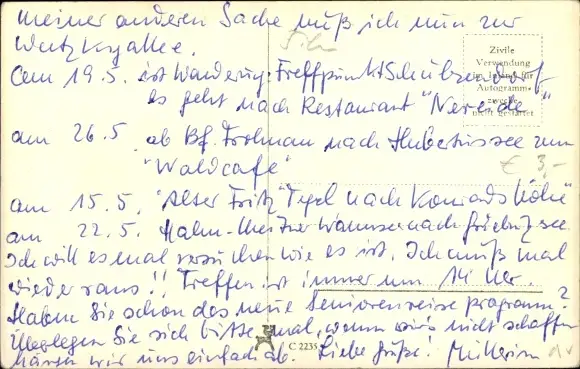 meiner anderen Sache muß ich nun zur
Film
am 19.5. ist Wanderung. Treffpunkt Schulzendorf.
es geht nach Restaurant "Nereide"
am 26.5 ab Bf. Frohnau nach Hubertussee zum
"Waldcafe"
€ 3,-
am 15.5. "Alter Fritz" Tegel nach Konradshöhe"
am 22.5. Hahn-Meitner Wannsee nach Griebnitzsee.
Ich will es mal versuchen wie es ist. Ich muß mal
wieder raus!! Treffen ist immer um 14 Uhr.
Haben Sie schon das neue Seniorenreiseprogramm?
Überlegen Sie sich bitte mal, wenn wir's nicht schaffen
C 2235
wir uns einfach ab. Liebe Grüße!
Zivile
Verwendung
im Inland für
Autogramm-
zwecke
nicht gestattet